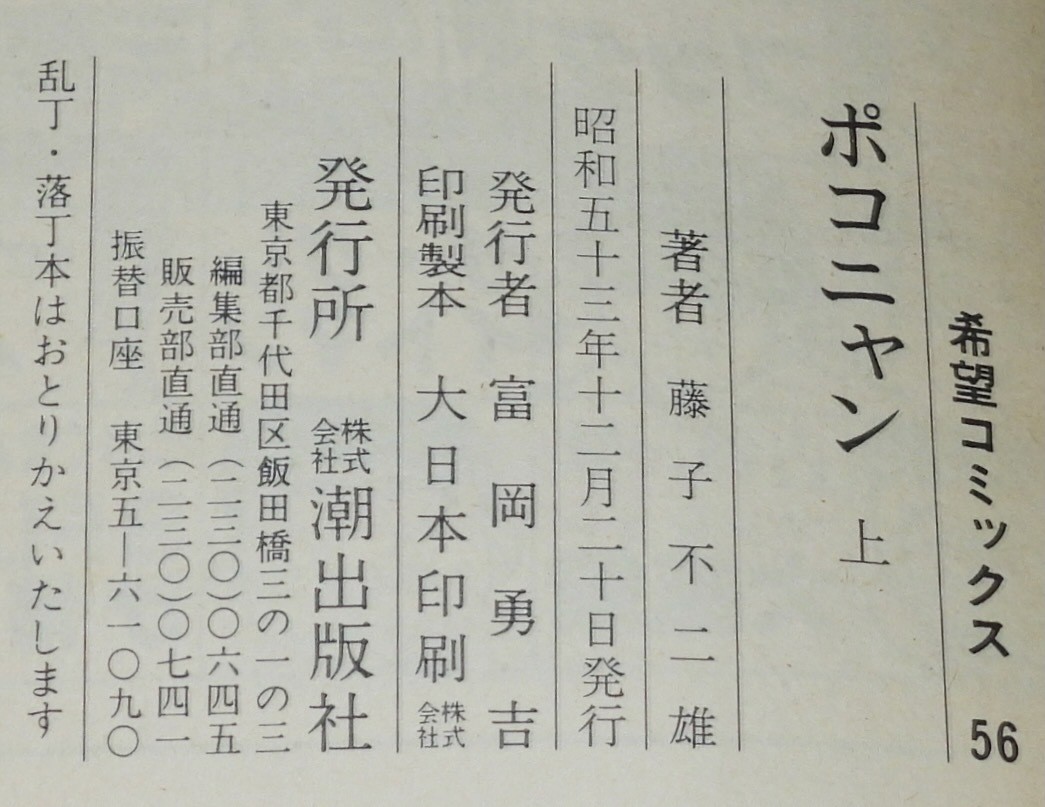 希望コミックス 56
ポコニャン 上
著者 藤子不二雄
昭和五十三年十二月二十日発行
発行者 富岡勇吉
印刷製本 大日本印刷株式会社
発行所 株式会社潮出版社
東京都千代田区飯田橋三の一の三
編集部直通(二三〇)〇六四五
販売部直通(二三〇)〇七四一
振替口座 東京五―六一〇九〇
乱丁・落丁本はおとりかえいたします